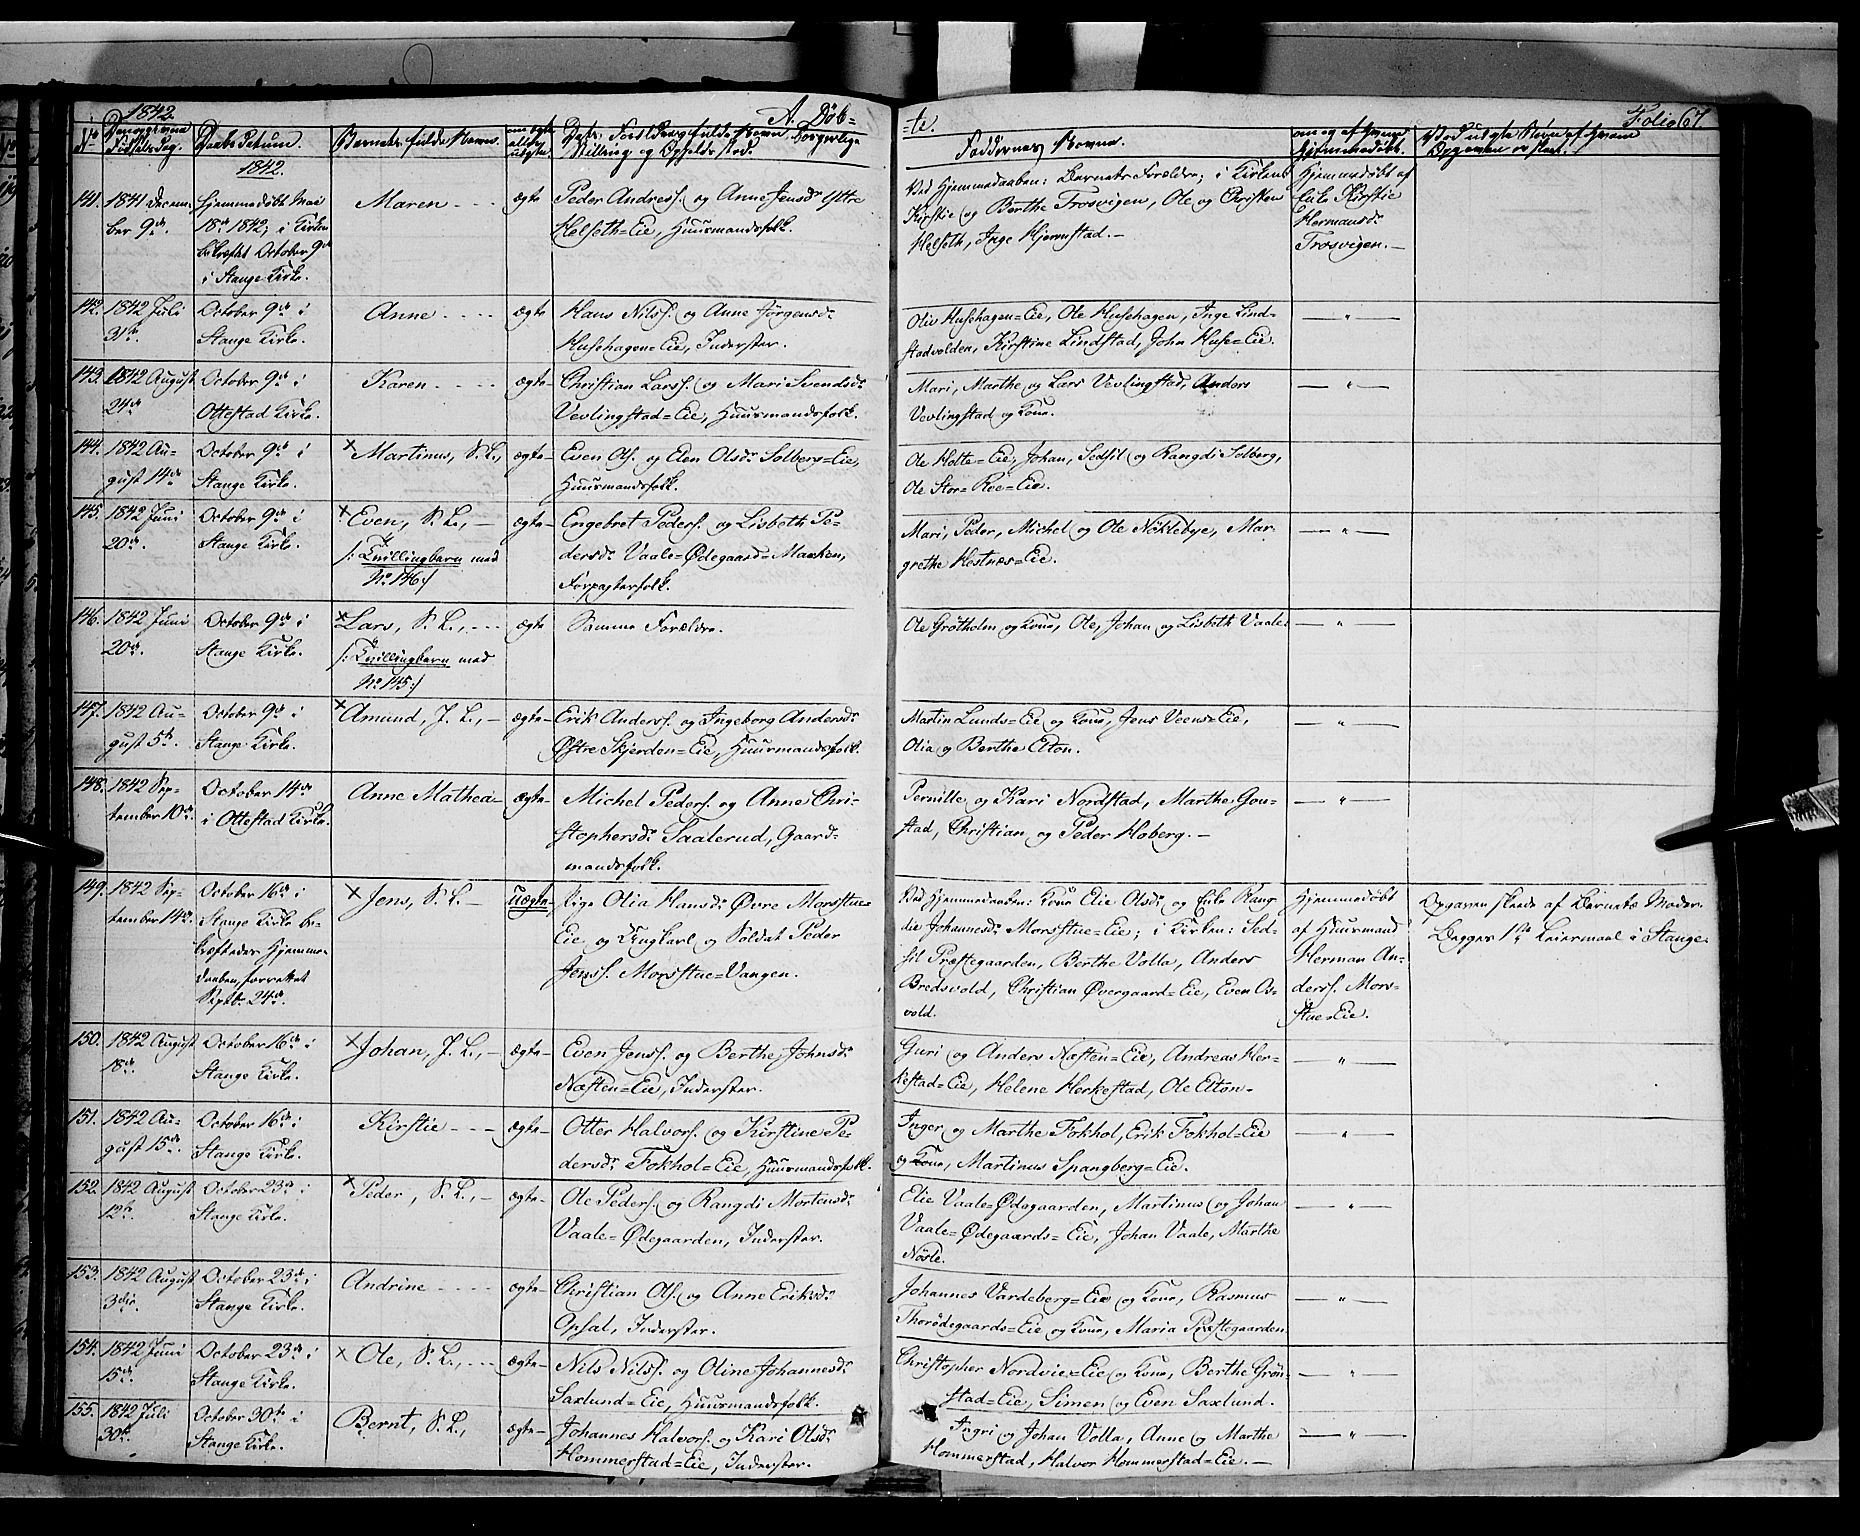 1842.
A. Døb=
=te.
Folio 67.
No
Daabs Datum.
Barnets fulde Navn.
Faddernes Navne.
1842.
141. 1841 Decem- Hjemmedøbt Mai Maren ægte Peder Anderss. og Anne Jensdr Østre
ber 9de 18de 1842, i Kirken Helseth=Eie, Huusmandsfolk.
bekræftet October 9de
i Stange Kirke.
Ved Hjemmedaaben: Barnets Forældre; i Kirken: Hjemmedøbt af
Kirstie og Berthe Trosvigen, Ole og Christen Enke Kirstie
Helseth, Inge Hjernstad.— Hermansdr
Trosvigen.—
142. 1842 Juli October 9de i Anne ægte Hans Nilss. og Anne Jørgensdr
31te Stange Kirke. Husehagen=Eie, Inderster.
Oliv Husehagen=Eie, Ole Husehagen, Inge Lind- — " —
stadvolden, Kirstine Lindstad, John Huse=Eie.
143. 1842 August October 9de i Karen ægte- Christian Larss. og Mari Svendsdr
24de Ottestad Kirke. Vevlingstad=Eie, Huusmandsfolk.
Mari, Marthe og Lars Vevlingstad, Anders — " —
Vevlingstad og Kone.
144. 1842 Au- October 9de i × Martinus, S. L., ægte- Even Ols. og Elen Olsdr Solberg=Eie,
gust 14de Stange Kirke. Huusmandsfolk.
Ole Holte=Eie, Johan, Sedsil og Rangdi Solberg, — " —
Ole Stor=Ree=Eie.
145. 1842 Juni October 9de i × Even, S. L., — ægte- Engebret Peders. og Lisbeth Pe-
20de Stange Kirke. /: Tvillingbarn med dersdr Vaale=Ødegaard=Marken,
No 146 :/ Forpagterfolk.
Mari, Peder, Michel og Ole Nöklebye, Mar- — " —
grethe Hestnæs=Eie.
146. 1842 Juni October 9de i × Lars, S. L., ægte Samme Forældre.
20de Stange Kirke. /: Tvillingbarn med
No 145 :/
Ole Grötholen og Kone, Ole, Johan og Lisbeth Vaale. — " —
147. 1842 Au- October 9de i × Amund, J. L., — ægte- Erik Anderss. og Ingeborg Andersdr
gust 5te Stange Kirke. Østre Skjerden=Eie, Huusmandsfolk.
Martin Lunds=Eie og Kone, Jens Veens=Eie, — " —
Olia og Berthe Elton.
148. 1842 Sep- October 14de Anne Mathea- ægte- Michel Peders. og Anne Chri-
tember 10de i Ottestad Kirke. stophersdr Saalerud, Gaard-
mandsfolk.
Pernille og Kari Nordstad, Marthe Gon- — " —
stad, Christian og Peder Hoberg.—
149. 1842 Sep- October 16de i × Jens, S. L. — Uægte, Pige Olia Hansdr Øvre Morstue=
tember 14de Stange Kirke be- Eie og Ungkarl og Soldat Peder
kræftedes Hjemme- Jenss. Morstue=Vangen.
daaben, forrettet
Septbr 24de
Ved Hjemmedaaben: Kone Elie Olsdr og Enke Rang Hjemmedøbt Opgaven skede af Barnets Moder.
die Johannesdr Morstue=Eie; i Kirken: Sed- af Huusmand Begges 1ste Leiermaal i Stange.
sil Præstegaarden, Berthe Volla, Anders Herman An-
Bredsvold, Christian Øvergaard=Eie, Even Os- derss. Mors-
vold. stue=Eie.
150. 1842 August October 16de i × Johan, J. L., — ægte- Even Jenss. og Berthe Johnsdr
18de Stange Kirke. Næsten=Eie, Inderster.
Guri og Anders Næsten=Eie, Andreas Her- — " —
kestad=Eie, Helene Herkestad, Ole Elton-
151. 1842 Au- October 16de i Kirstie ægte- Otter Halvors. og Kirstine Pe-
gust 15de Stange Kirke. dersdr Fokhol=Eie, Huusmandsfolk.
Inger og Marthe Fokhol, Erik Fokhol=Eie — " —
og Kone, Martinus Spangberg=Eie.
152. 1842 August October 23de i × Peder, S. L., — ægte- Ole Peders. og Rangdi Mortensdr
12te Stange Kirke. Vaale=Ødegaarden, Inderster.
Elie Vaale=Ødegaarden, Martinus og Johan — " —
Vaale=Ødegaards=Eie, Johan Vaale, Marthe
Nösle.
153. 1842 August October 23de i Andrine ægte- Christian Ols. og Anne Eriksdr
3die Stange Kirke. Opsal, Inderster.
Johannes Vardeberg=Eie og Kone, Rasmus — " —
Thorödegaards=Eie og Kone, Maria Præstegaarden
154. 1842 Juni October 23de i × Ole, S. L., ægte- Nils Nilss. og Oline Johannesdr
15de Stange Kirke. Saxlund=Eie, Huusmandsfolk.
Christopher Nordvie=Eie og Kone, Berthe Grön- — " —
stad=Eie, Simen og Even Saxlund.
155. 1842 Juli October 30te i Bernt, S. L., ægte- Johannes Halvors. og Kari Olsdr
30te Stange Kirke. Hommerstad=Eie, Inderster.
Ingri og Johan Volla, Anne og Marthe — " —
Hommerstad, Halvor Hommerstad=Eie.—